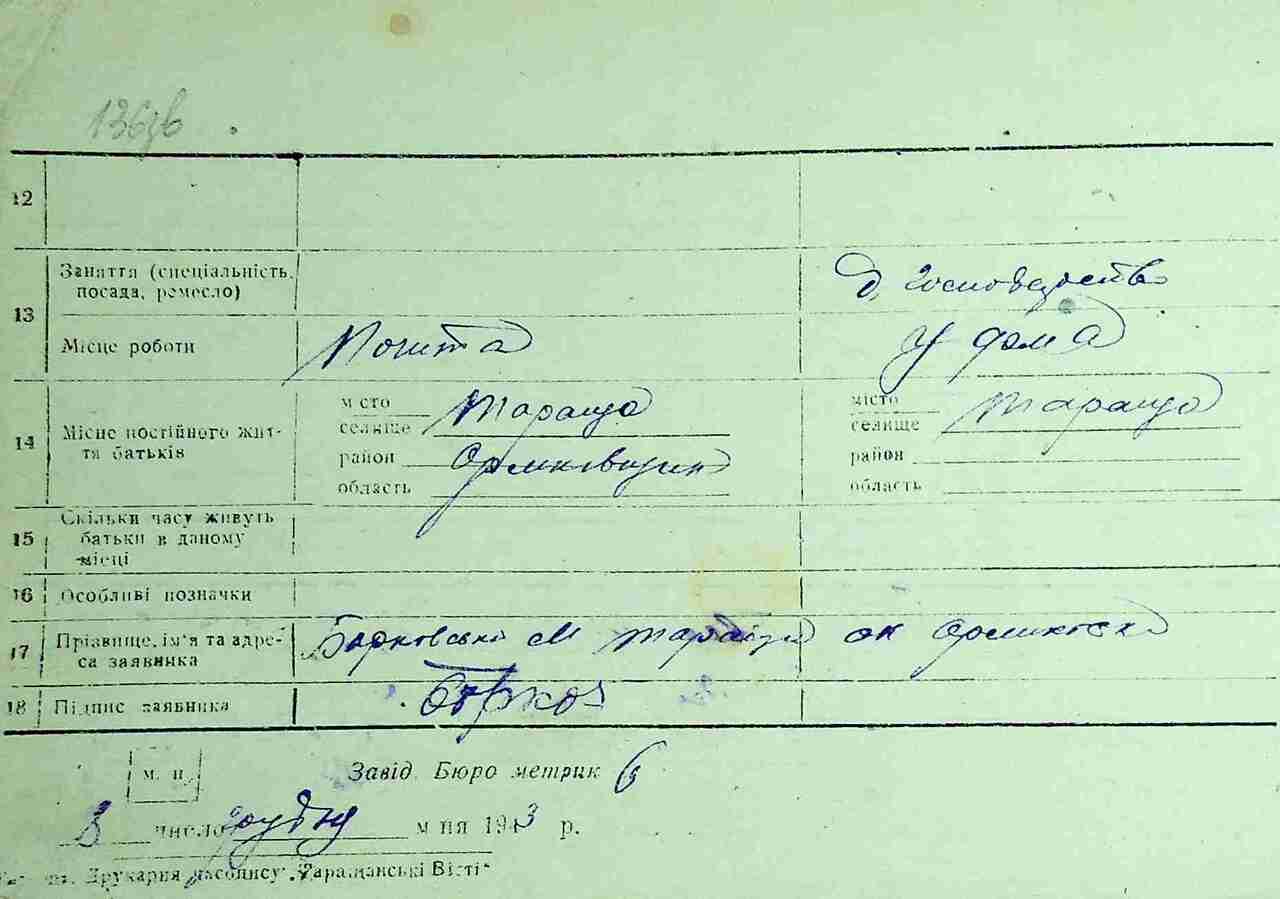 136зв
12
13 Заняття (спеціальність, посада, ремесло) д. господарство
Місце роботи Пошта У дома
14 Місце постійного життя батьків
місто Тараща місто Тараща
селище селище
район район
область область
15 Скільки часу живуть батьки в даному місці
16 Особливі позначки
17 Прізвище, ім'я та адреса заявника Барковський М Тараща
18 Підпис заявника
м. п. Завід. Бюро метрик
8 число грудня м-ця 1943 р.
Друкарня часопису „Таращанські Вісті“